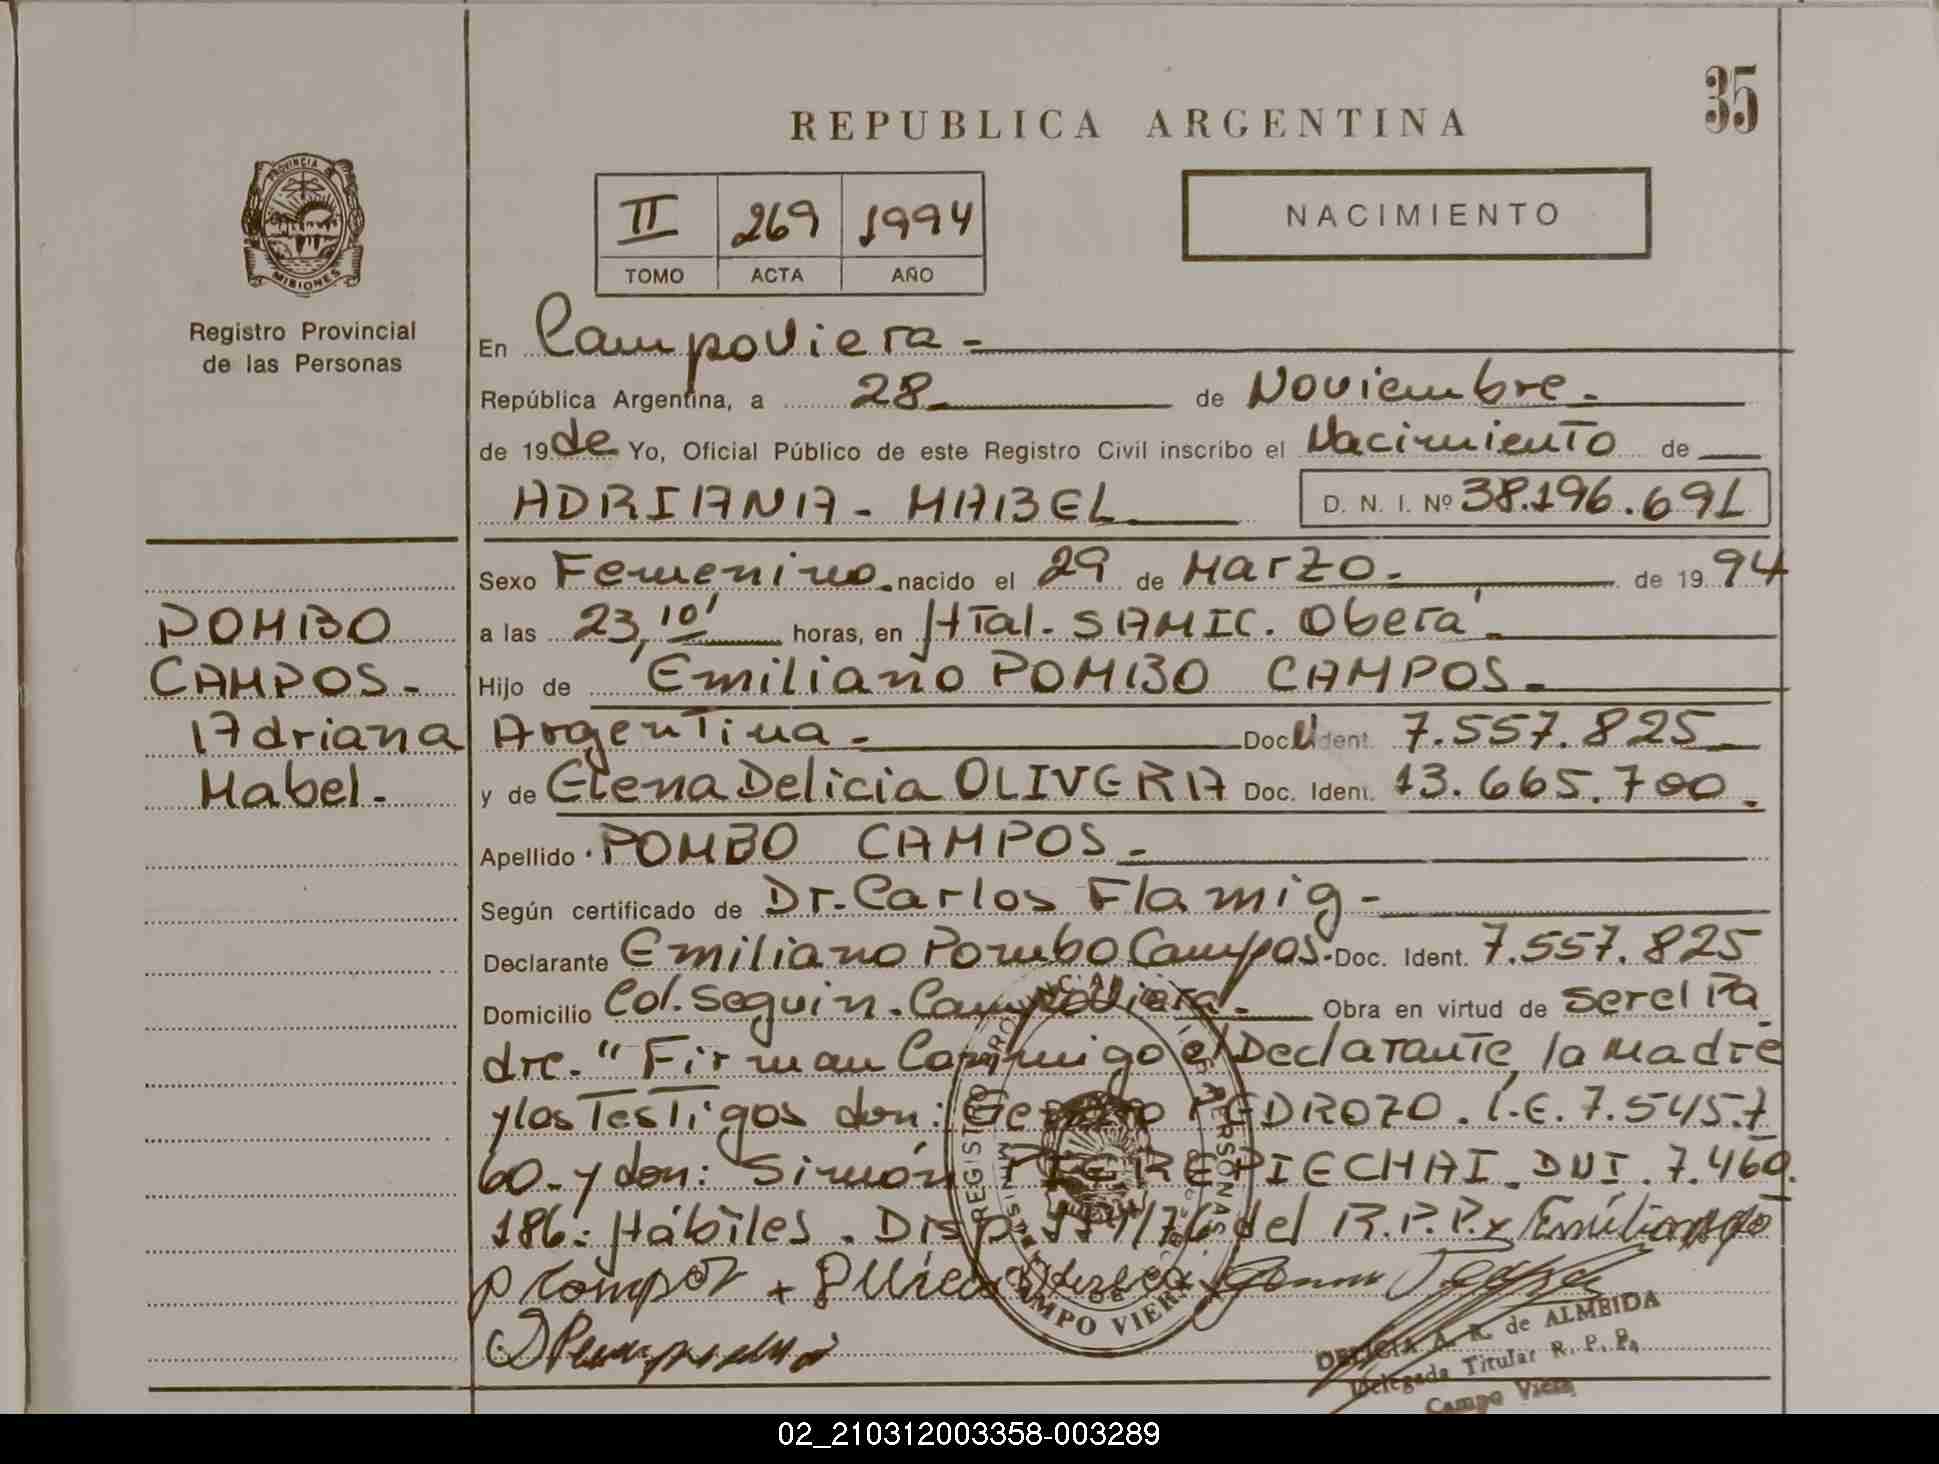 35
REPUBLICA ARGENTINA
PROVINCIA DE
MISIONES
Registro Provincial
de las Personas
II 269 1994
TOMO ACTA AÑO
NACIMIENTO
En Campoviera -
República Argentina, a 28 de Noviembre.
de 19 de Yo, Oficial Público de este Registro Civil inscribo el Nacimiento de
ADRIANA - MABEL D. N. I. Nº 38.196.691
Sexo Femenino. nacido el 29 de Marzo. de 19 94
a las 23,10' horas, en Htal. SAMIC. Oberá.
Hijo de Emiliano POMBO CAMPOS.
Argentina. Doc. Ident. 7.557.825
y de Elena Delicia OLIVERA Doc. Ident. 13.665.700.
Apellido POMBO CAMPOS -
Según certificado de Dr. Carlos Flamig -
Declarante Emiliano Pombo Campos. Doc. Ident. 7.557.825
Domicilio Col. Seguin. Campoviera. Obra en virtud de ser el Pa
dre." Firman Conmigo el Declarante, la madre
y los Testigos don: PEDROZO. L.E. 7.545.7
60. y don: Simón PIECHAI. DNI. 7.460.
186: Hábiles. Disp. /76 del R.P.P. x Emiliano
POMBO
CAMPOS -
Adriana
Mabel -
REGISTRO PERSONAS
CAMPO VIERA
DELICIA A. R. de ALMEIDA
Delegada Titular R. P. P.
Campo Viera
02_210312003358-003289